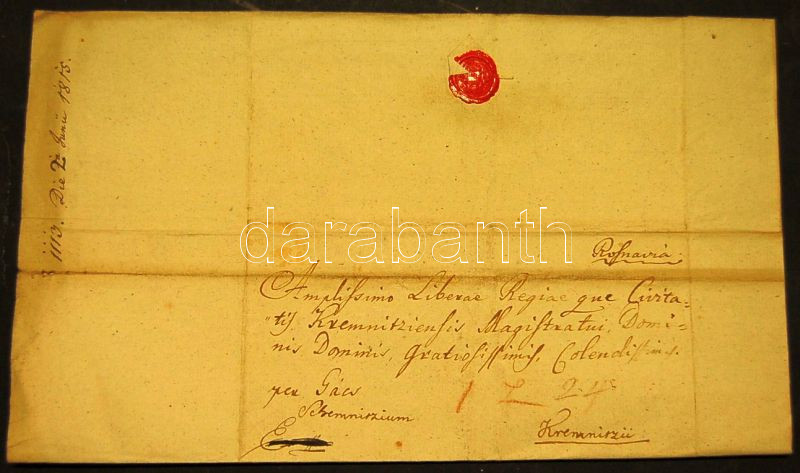 1113. Die 2ª Junii 1815.
darabanth
Rosnavia.
Amplissimo Liberae Regiae que Civita-
tis Kremnitziensis Magistratui, Domi-
nis Dominis, Gratiosissimis, Colendissimis.
per Gács
Schemnitzium
Kremnitzii